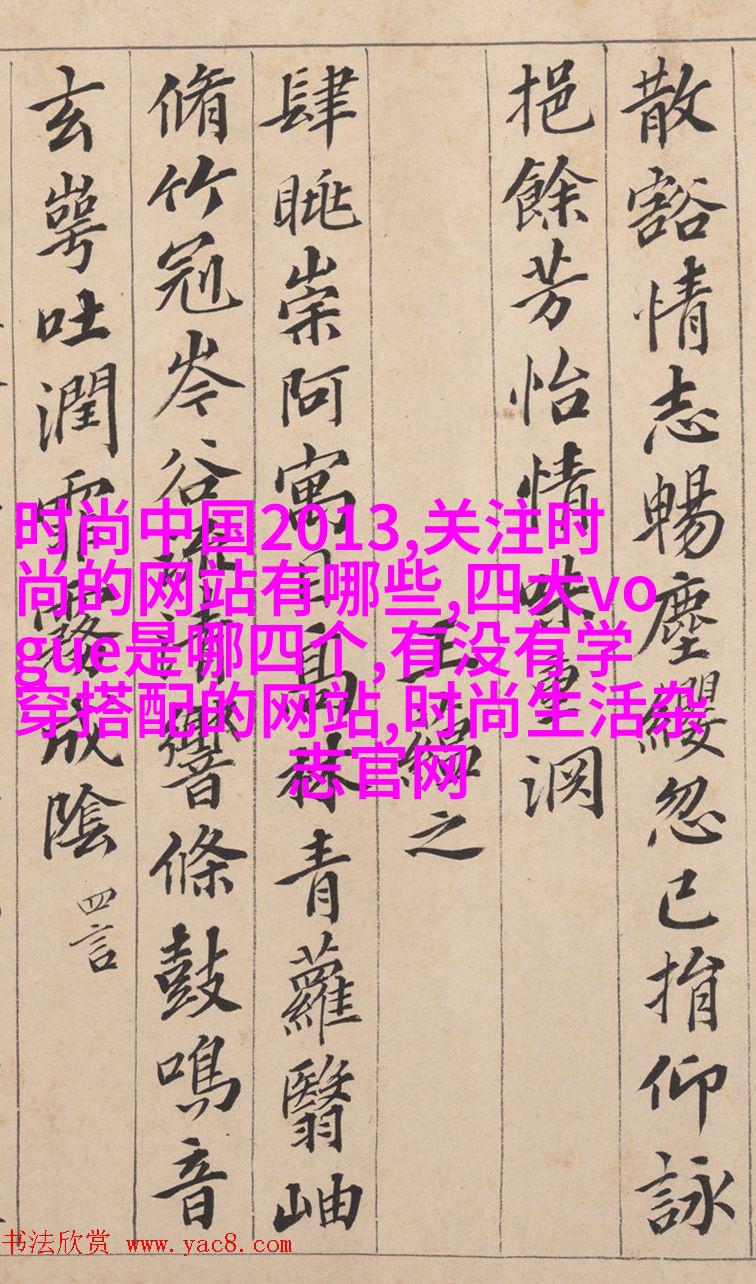 散豁情志暢塵纓忽已捐仰詠
挹餘芳怡情味重渊
王蘊之
肆眺崇阿寓目高林青蘿翳岫
脩竹冠岑谷流清響條鼓鳴音
玄崿吐潤霏霧成陰 四言
时尚中国2013,关注时
尚的网站有哪些,四大vo
gue是哪四个,有没有学
穿搭配的网站,时尚生活杂
志官网
书法欣赏 www.yac8.com